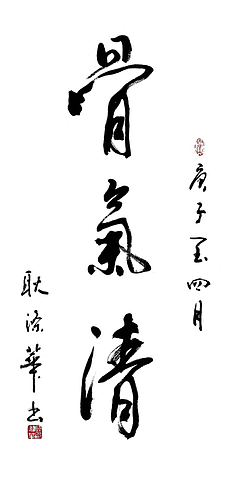 骨氣清
庚子年四月
耿滌華书